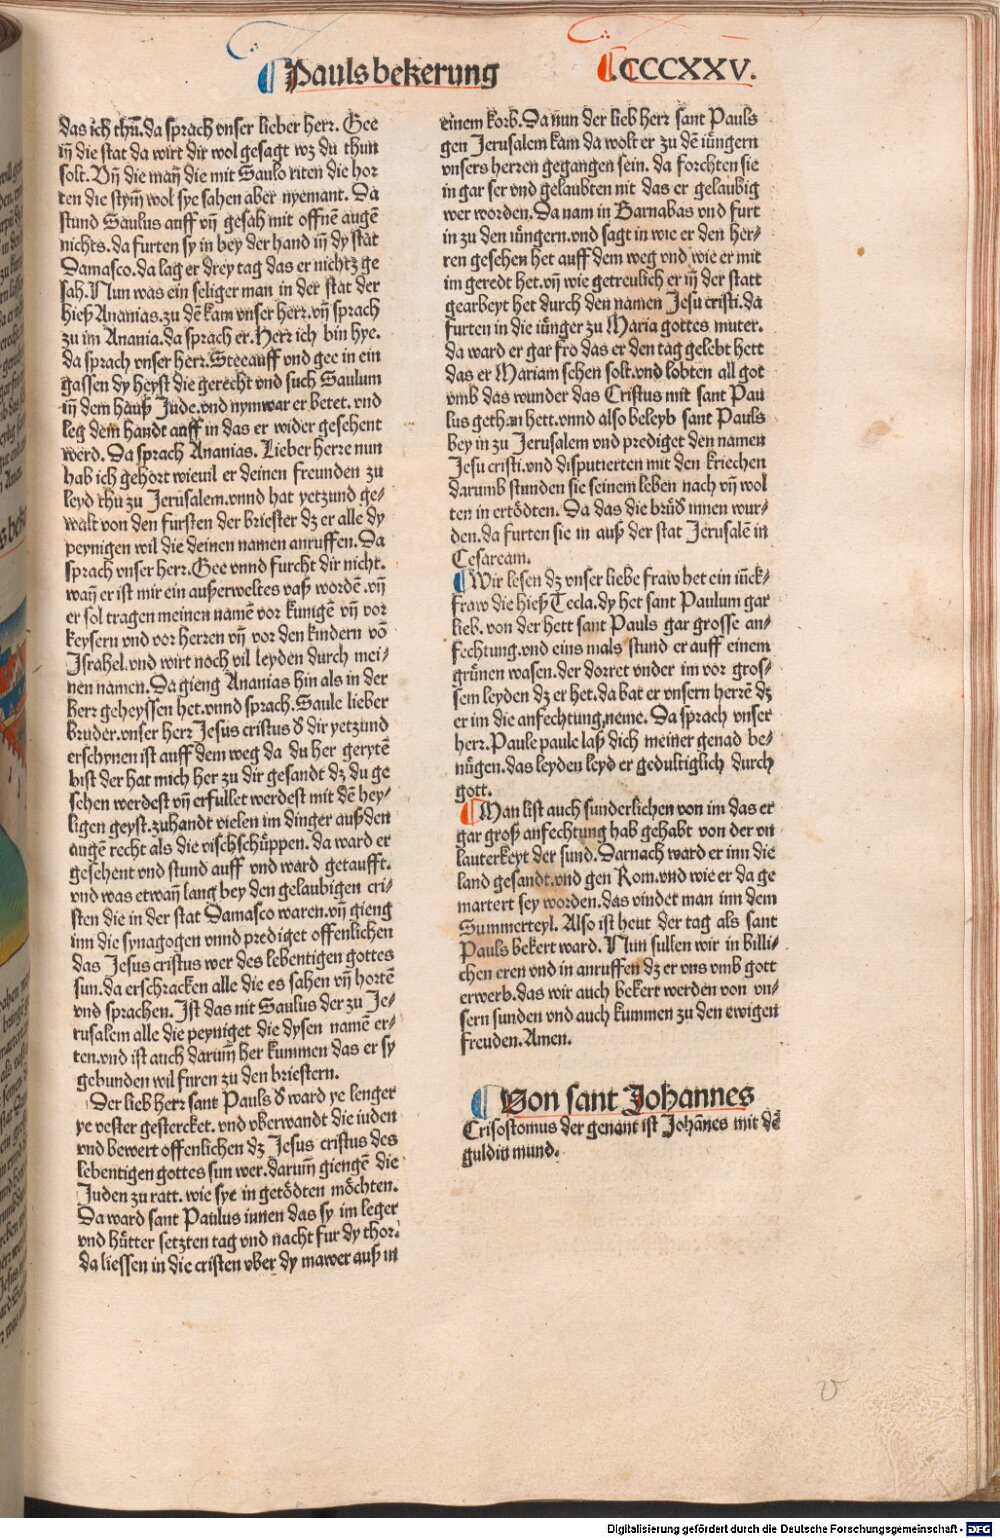 Pauls bekerung CCCXXV.
das ich thů. da sprach vnser lieber herr. Gee
iñ die stat da wirt dir wol gesagt wz du thun
solt. Vñ die mañ die mit Saulo riten die hor
ten die stym̄ wol sye sahen aber nyemant. Da
stund Saulus auff vñ gesah mit offnē augē
nichts. da furten sy in bey der hand iñ dy stat
Damasco. da lag er drey tag das er nichtz ge
sah. Nun was ein seliger man in der stat der
hieß Ananias. zu dē kam vnser herr. vñ sprach
zu im Anania. da sprach er. Herr ich bin hye.
da sprach vnser herr. Stee auff vnd gee in ein
gassen dy heyst die gerecht vnd such Saulum
iñ dem hauß Jude. vnd nym war er betet. vnd
leg dem handt auff in das er wider gesehent
werd. Da sprach Ananias. Lieber herre nun
hab ich gehort wieuil er deinen freunden zu
leyd thu zu Jerusalem. vnnd hat yetzund ge⸗
walt von den fursten der briester dz er alle dy
peynigen wil die deinen namen anruffen. Da
sprach vnser herr. Gee vnnd furcht dir nicht.
wañ er ist mir ein außerweltes vaß wordē. vñ
er sol tragen meinen namē vor kunigē vñ vor
keysern vnd vor herren vñ vor den kindern vō
Israhel. vnd wirt noch vil leyden durch mei⸗
nen namen. Da gieng Ananias hin als in der
herr geheyssen het. vnnd sprach. Saule lieber
bruder. vnser herr Jesus cristus ď dir yetzund
erschynen ist auff dem weg da du her gerytē
bist der hat mich her zu dir gesandt dz du ge
sehen werdest vñ erfullet werdest mit dē hey⸗
ligen geyst. zuhandt vielen im dinger auß den
augē recht als die vischschüppen. da ward er
gesehent vnd stund auff vnd ward getaufft.
vnd was etwañ lang bey den gelaubigen cri⸗
sten die in der stat Damasco waren. vñ gieng
inn die synagogen vnnd prediget offenlichen
das Jesus cristus wer des lebentigen gottes
sun. da erschracken alle die es sahen vñ hortē
vnd sprachen. Ist das nit Saulus der zu Je⸗
rusalem alle die peyniget die dysen namē er⸗
ten. vnd ist auch darum̄ her kummen das er sy
gebunden wil furen zu den briestern.
Der lieb herr sant Pauls ď ward ye lenger
ye vester gestercket. vnd vberwandt die iuden
vnd bewert offenlichen dz Jesus cristus des
lebentigen gottes sun wer. darum̄ giengē die
Juden zu ratt. wie sye in getödten möchten.
Da ward sant Paulus innen das sy im leger
vnd hütter setzten tag vnd nacht fur dy thor.
da liessen in die cristen vber dy mawer auß in
einem korb. Da nun der lieb herr sant Pauls
gen Jerusalem kam da wolt er zu dē iüngern
vnsers herren gegangen sein. da forchten sie
in gar ser vnd gelaubten nit das er gelaubig
wer worden. Da nam in Barnabas vnd furt
in zu den iüngern. vnd sagt in wie er den her⸗
ren gesehen het auff dem weg vnd wie er mit
im geredt het. vñ wie getreulich er iñ der statt
gearbeyt het durch den namen Jesu cristi. da
furten in die iünger zu Maria gottes muter.
da ward er gar fro das er den tag gelebt hett
das er Mariam sehen solt. vnd lobten all got
vmb das wunder das Cristus mit sant Pau
lus gethan hett. vnnd also beleyb sant Pauls
bey in zu Jerusalem vnd prediget den namen
Jesu cristi. vnd disputierten mit den kriechen
darumb stunden sie seinem leben nach vñ wol
ten in ertödten. Da das die brüď innen wur⸗
den. da furten sie in auß der stat Jerusalē in
Cesaream.
Wir lesen dz vnser liebe fraw het ein iūck⸗
fraw die hieß Tecla. dy het sant Paulum gar
lieb. von der hett sant Pauls gar grosse an⸗
fechtung. vnd eins mals stund er auff einem
grünen wasen. der dorret vnder im vor gros⸗
sem leyden dz er het. da bat er vnsern herrē dz
er im die anfechtung neme. Da sprach vnser
herr. Paule paule laß dich meiner genad be⸗
nügen. das leyden leyd er gedultiglich durch
gott.
Man list auch sunderlichen von im das er
gar groß anfechtung hab gehabt von der vn
lauterkeyt der sund. Darnach ward er inn die
land gesandt. vnd gen Rom. vnd wie er da ge
martert sey worden. das vindet man inn dem
Summerteyl. Also ist heut der tag als sant
Pauls bekert ward. Nun sullen wir in billi⸗
chen eren vnd in anruffen dz er vns vmb gott
erwerb. das wir auch bekert werden von vn⸗
sern sunden vnd auch kummen zu den ewigen
freuden. Amen.
Von sant Johannes
Crisostomus der genant ist Johānes mit dē
guldin mund.
v
Digitalisierung gefördert durch die Deutsche Forschungsgemeinschaft - DFG